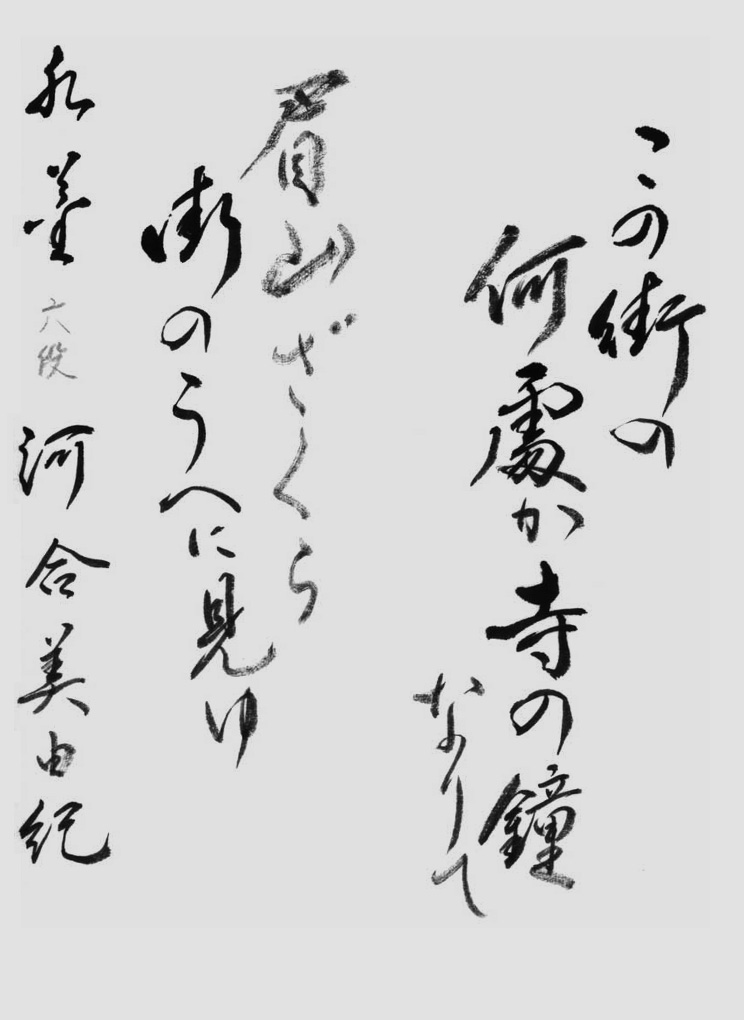 この街の
何處か寺の鐘
なりて
眉山ざくら
街のうへに見ゆ
永墨 六段 河合美由紀